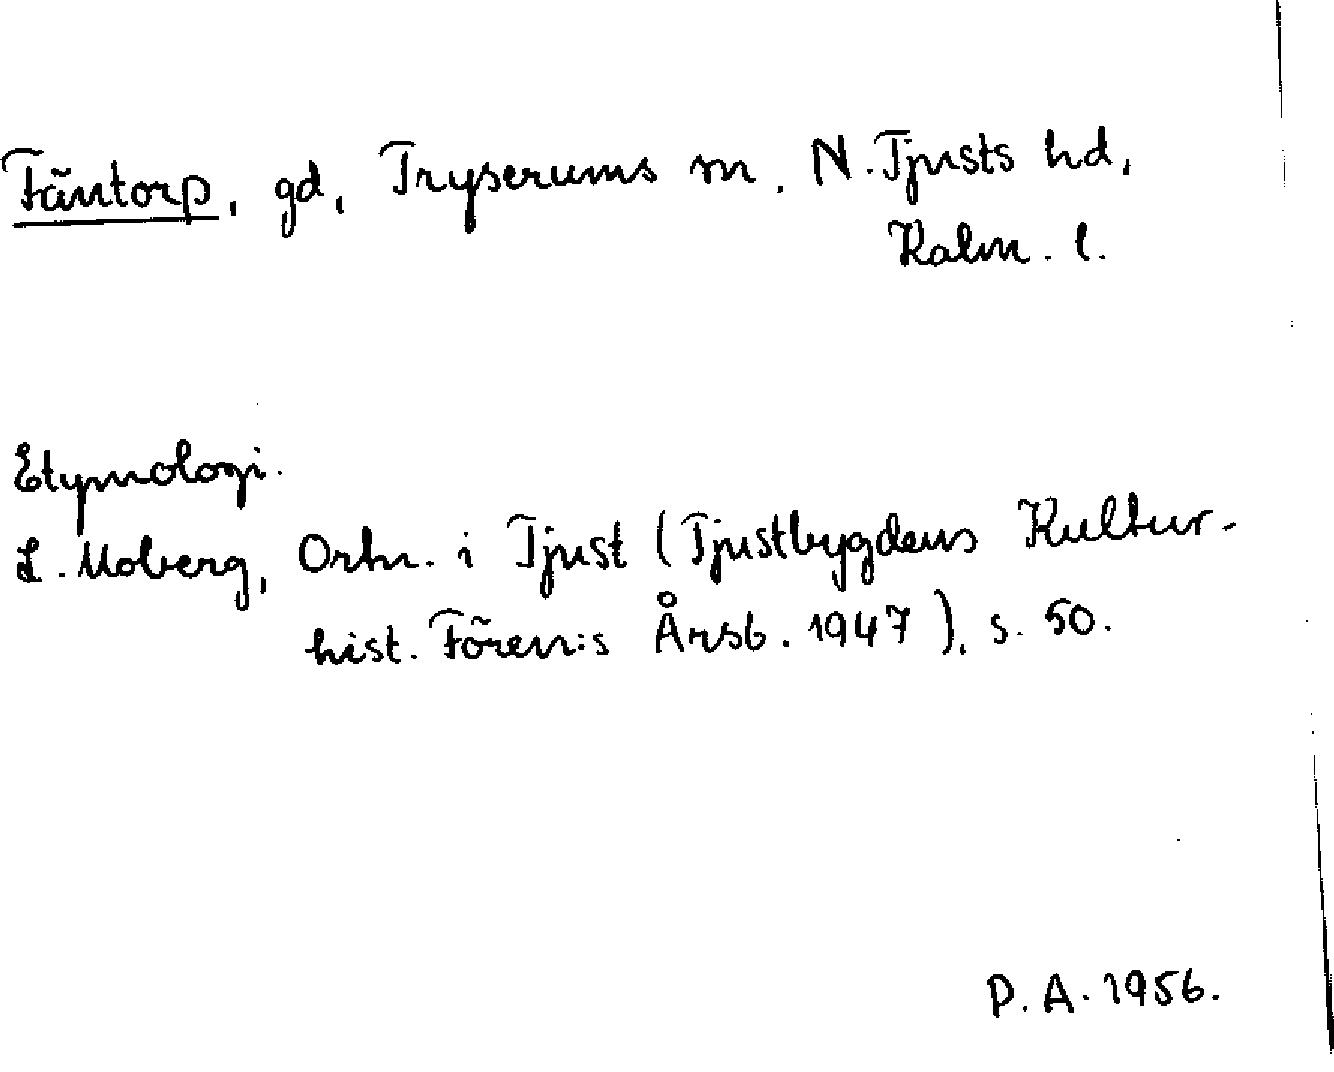 Fäntorp, gd, Tryserums sn, N. Tjusts hd,
Kalm. l.
Etymologi.
L. Moberg, Ortn. i Tjust (Tjustbygdens Kultur-
hist. Fören:s Årsb. 1947), s. 50.
P. A. 1956.